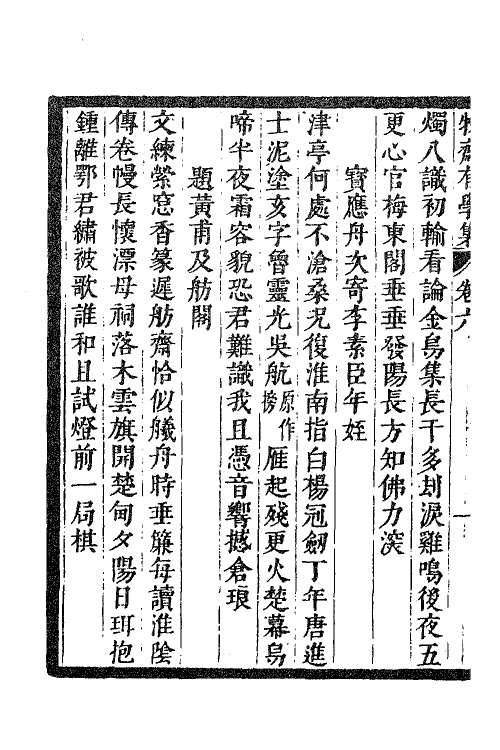 牧齋有學集 卷六
燭八識初輸看論金烏集長干多刦淚雞鳴後夜五
更心官梅東閣垂垂發陽長方知佛力湥
寶應舟次寄李素臣年姪
津亭何處不滄桑况復淮南指白楊冠劒丁年唐進
士泥塗亥字魯靈光吳航原作榜雁起殘更火楚幕烏
啼半夜霜容貌恐君難識我且憑音響撼倉琅
題黃甫及舫閣
文練縈窓香篆遲舫齋恰似艤舟時垂簾每讀淮隂
傳卷幔長懷漂母祠落木雲旗開楚甸夕陽日珥抱
鍾離鄂君繡被歌誰和且試燈前一局棋